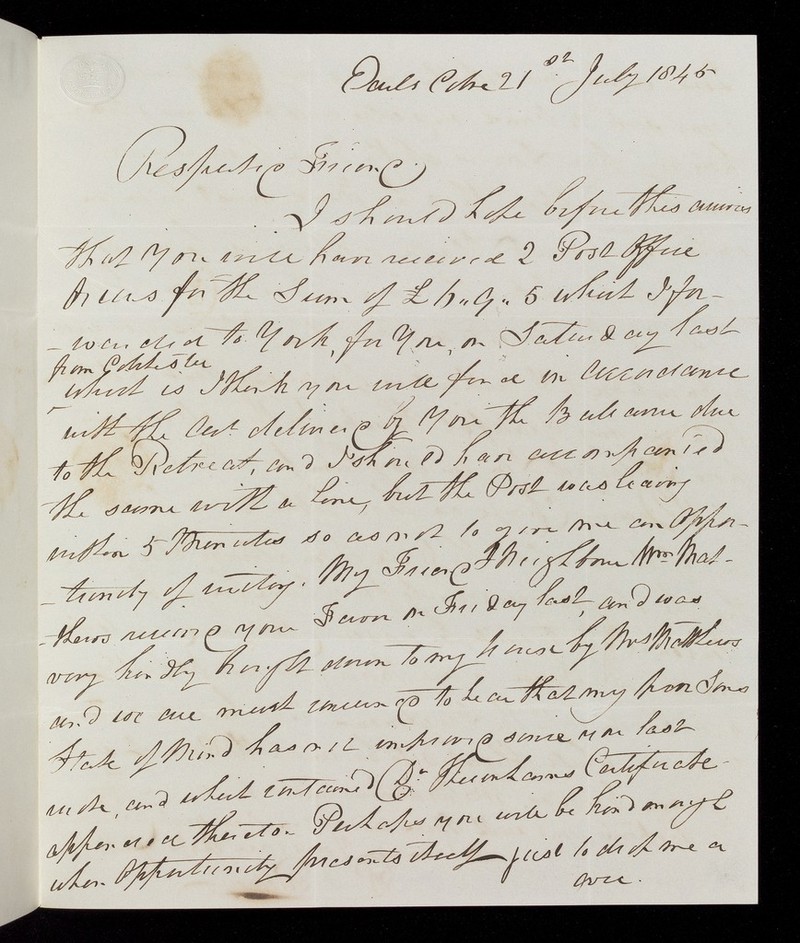 Earls Colne 21st July 1845
Respected Friend
I should hope before this arrives
that you will have received 2 Post Office
Orders for the Sum of £ 9 " 5 which I for-
-warded to York, for You, on Saturday last
from Colchester
which is I think you will find in accordance
with the Act. delivered by You the Ballance due
to the Retreat, and I should have accompanied
the same with a line, but the Post was leaving
within 5 Minutes so as not to give me an Oppor-
-tunity of writing. My Friend & Neighbour Wm Mat-
-thews received your Favor on Friday last, and was
very kindly brought down to my house by Mrs Matthews
and we are much concerned to hear that my poor Sons
State of Mind has not improved since you last
wrote, and which contained Dr Thurnhams Certificate
appended thereto - Perhaps you will be kind enough
when Opportunity presents itself just to drop me a
over.